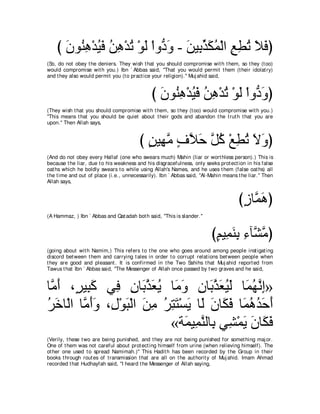 (فَلاَ تُطِعِ الْمُكَذِّبِينَ - وَدُّواْ لَوْ تُدْهِنُ فَيُدْهِنُونَ)
(So, do not obey the deniers. They wish that you should compromise with them, so they (too)
would compromise with you.) Ibn `Abbas said, "That you would permit them (their idolatry)
and they also would permit you (to practice your religion).'' Mujahid said,
(وَدُّواْ لَوْ تُدْهِنُ فَيُدْهِنُونَ)
(They wish that you should compromise with them, so they (too) would compromise with you.)
"This means that you should be quiet about their gods and abandon the truth that you are
upon.'' Then Allah says,
(وَلاَ تُطِعْ كُلَّ حَلاَّفٍ مَّهِينٍ)
(And do not obey every Hallaf (one who swears much) Mahin (liar or worthless person).) This is
because the liar, due to his weakness and his disgracefulness, only seeks protection in his false
oaths which he boldly swears to while using Allah's Names, and he uses them (false oaths) all
the time and out of place (i.e., unnecessarily). Ibn `Abbas said, "Al-Mahin means the liar.'' Then
Allah says,
(هَمَّازٍ)
(A Hammaz,) Ibn `Abbas and Qatadah both said, "This is slander.''
(مَّشَّآءِ بِنَمِيمٍ)
(going about with Namim,) This refers to the one who goes around among people instigating
discord between them and carrying tales in order to corrupt relations between people when
they are good and pleasant. It is confirmed in the Two Sahihs that Mujahid reported from
Tawus that Ibn `Abbas said, "The Messenger of Allah once passed by two graves and he said,
«إِنَّهُمَا لَيُعَذَّبَانِ وَمَا يُعَذَّبَانِ فِي كَبِيرٍ، أَمَّا
أَحَدُهُمَا فَكَانَ لَا يَسْتَتِرُ مِنَ الْبَوْلِ، وَأَمَّا الْاخَرُ
فَكَانَ يَمْشِي بِالنَّمِيمَة»
(Verily, these two are being punished, and they are not being punished for something major.
One of them was not careful about protecting himself from urine (when relieving himself). The
other one used to spread Namimah.)" This Hadith has been recorded by the Group in their
books through routes of transmission that are all on the authority of Mujahid. Imam Ahmad
recorded that Hudhayfah said, "I heard the Messenger of Allah saying,